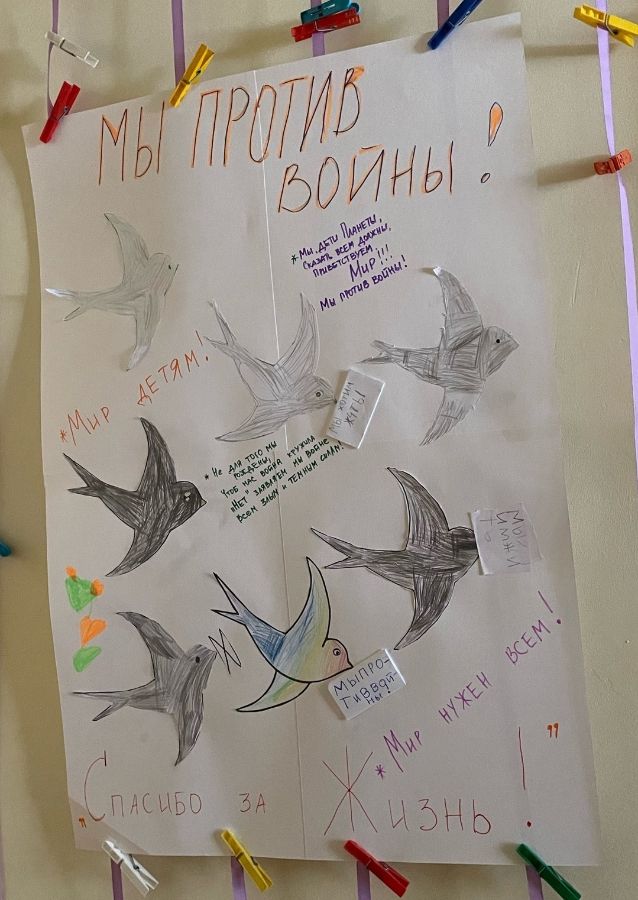 МЫ ПРОТИВ
ВОЙНЫ!
* Мы дети Планеты,
сказать всем должны,
приветствуем
Мир!!!
Мы против войны!
*Мир детям!
мы хотим
жить
* Не для того мы
рождены,
Чтоб нас война кружила
"Нет" заявляем мы войне
всем злым и тёмным силам!
МЫ ПРО-
ТИВ ВОЙ-
НЫ!
*Мир нужен всем!
„Спасибо за
Жизнь!"